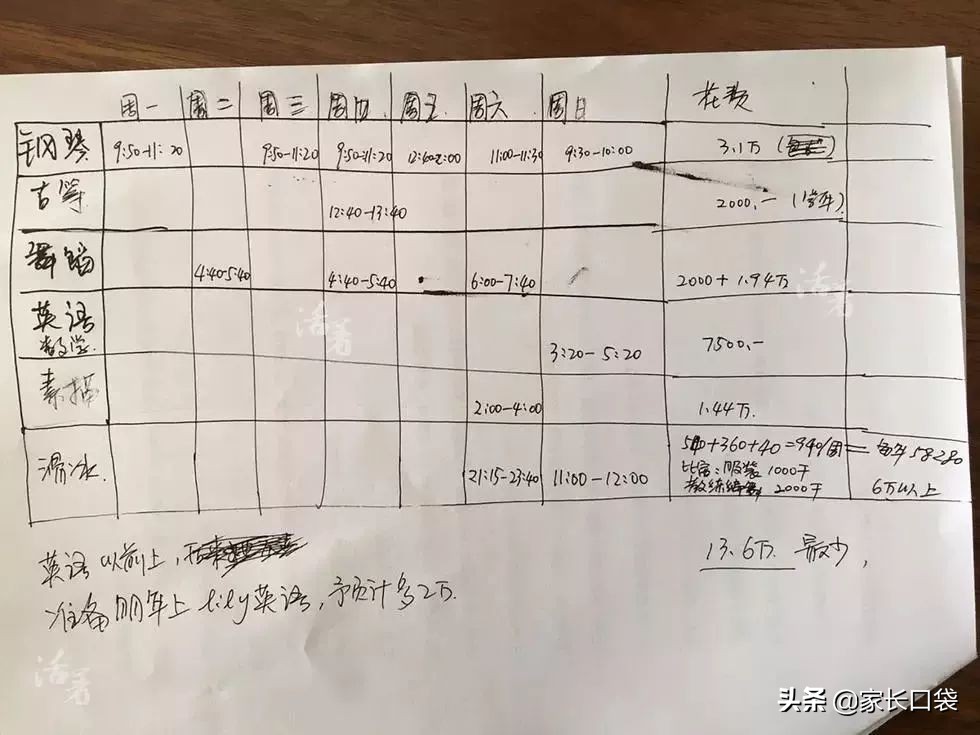 周一 周二 周三 周四 周五 周六 周日 花费
钢琴 9:50-11:20 9:50-11:20 9:50-11:20 12:40-2:00 11:00-11:30 9:30-10:00 3.1万
古筝 12:40-13:40 2000.-
舞蹈 4:40-5:40 4:40-5:40 6:00-7:40 2000+1.94万
英语
数学. 3:20-5:20 7500.-
素描 2:00-4:00 1.44万.
滑冰. 21:15-23:40 11:00-12:00
540+360+40=940/周= 每年58280
比赛:服装 1000千
教练 2000千
6万以上
英语以前上,
准备明年上lily英语,预计多2万.
13.6万 最少,
活着
活着
活着
头条 @家长口袋